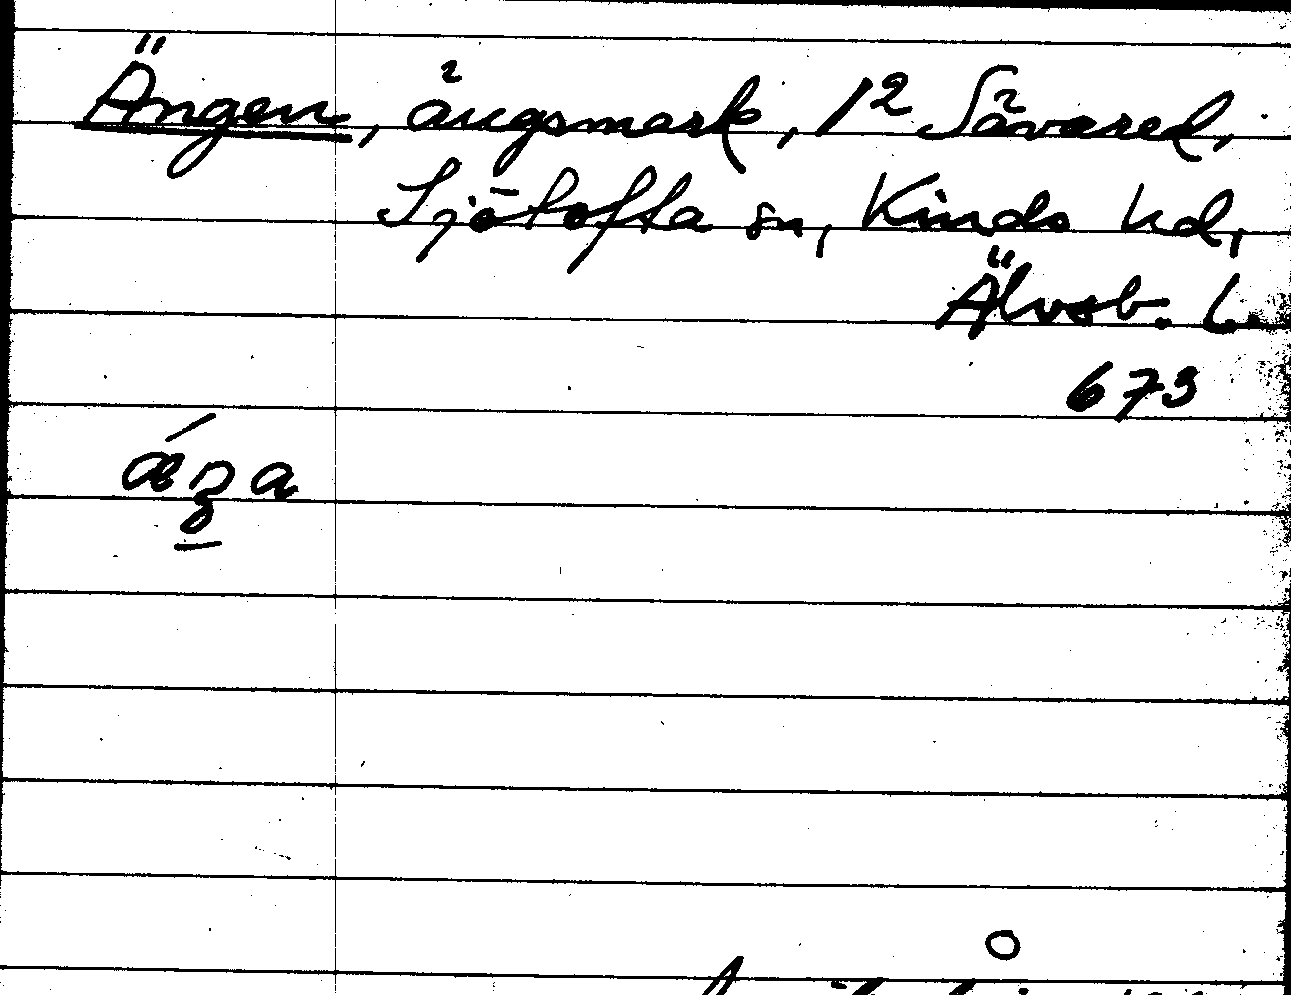 Ängen, ängsmark, 1² Sävared,
Sjötofta sn, Kinds hd,
Älvsb. l.
673